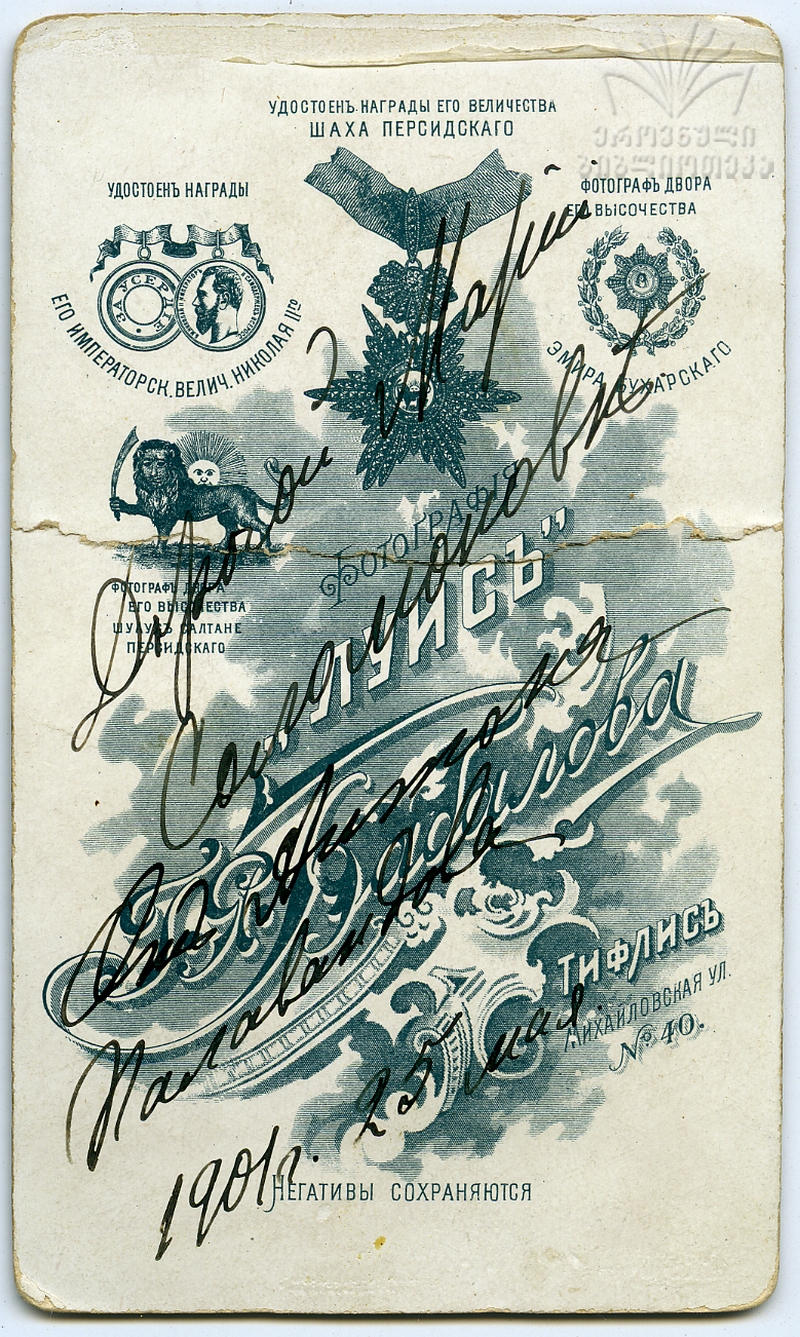 ეროვნული
ბიბლიოთეკა
УДОСТОЕНЪ НАГРАДЫ ЕГО ВЕЛИЧЕСТВА
ШАХА ПЕРСИДСКАГО
УДОСТОЕНЪ НАГРАДЫ
ЗА УСЕРДІЕ
ЕГО ИМПЕРАТОРСК. ВЕЛИЧ. НИКОЛАЯ IIго
ФОТОГРАФЪ ДВОРА
ЕГО ВЫСОЧЕСТВА
ЭМИРА БУХАРСКАГО
ФОТОГРАФЪ ДВОРА
ЕГО ВЫСОЧЕСТВА
ШУЛУКЪ САЛТАНЕ
ПЕРСИДСКАГО
ФОТОГРАФІЯ
„ЛУИСЪ"
Вавилова
ТИФЛИСЪ
МИХАЙЛОВСКАЯ УЛ.
№ 40.
НЕГАТИВЫ СОХРАНЯЮТСЯ
Дорогой Маріи
Соломоновнѣ
Палавандова
1901 г. 25 мая.